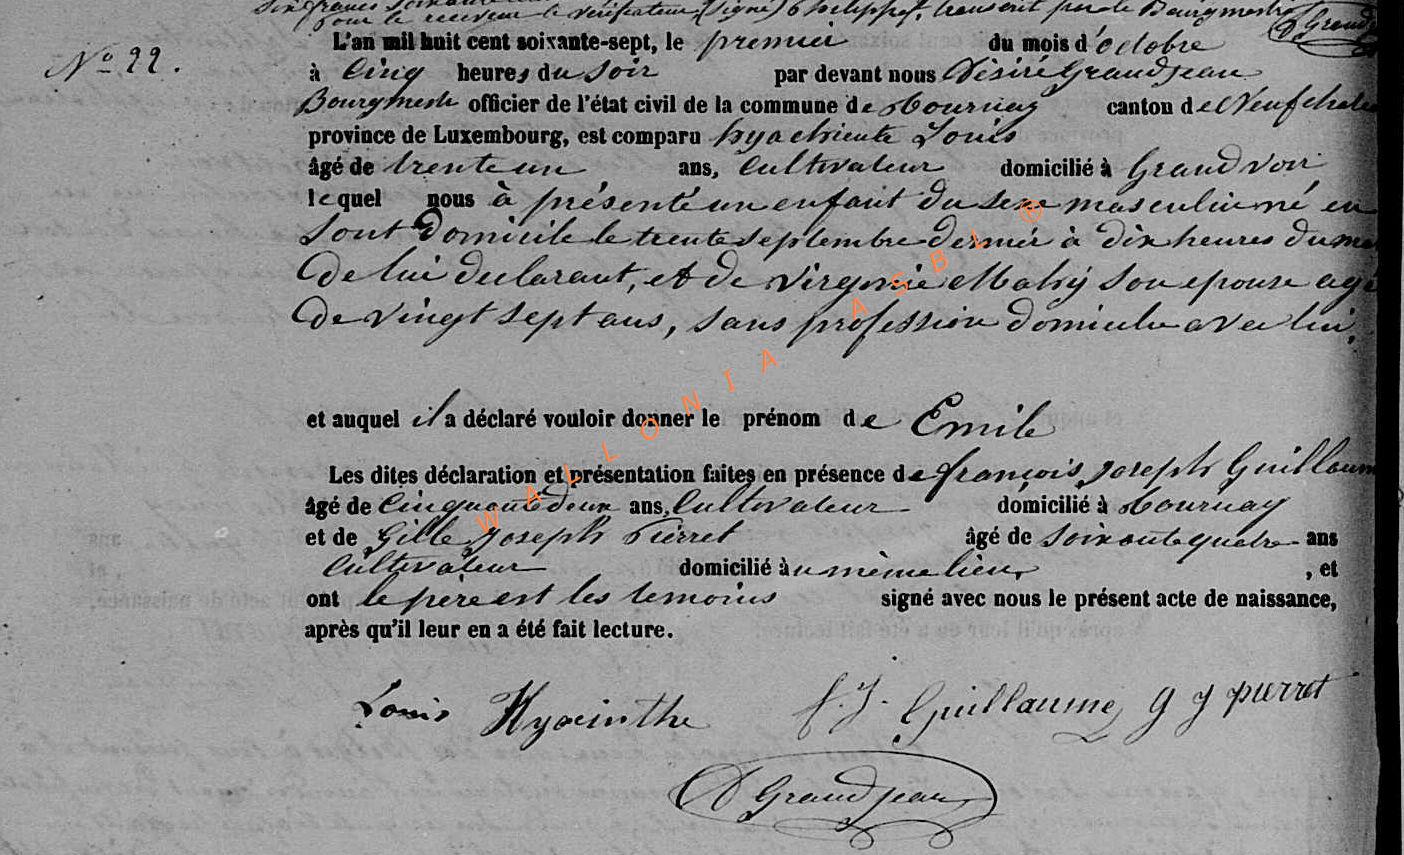 pour le receveur le vérificateur, (signé) Philippe, transcrit par le Bourgmestre
D Grandj
No 22.
L'an mil huit cent soixante-sept, le premier du mois d'octobre
à cinq heures du soir par devant nous Désiré Grandjean
Bourgmestre officier de l'état civil de la commune de tournay canton de Neufchate
province de Luxembourg, est comparu hyachinte Louis
âgé de trente un ans, Cultivateur domicilié à Grandvoir
lequel nous à présenté un enfant du sexe masculin né en
sont Domicile le trente septembre dernier à dix heures du ma
de lui declarant, et de Virginie Mahy son epouse agé
de vingt sept ans, sans profession domicilie avec lui,
et auquel il a déclaré vouloir donner le prénom de Emile
Les dites déclaration et présentation faites en présence de françois Joseph Guillaum
âgé de cinquante deux ans, Cultivateur domicilié à tournay
et de Gille Joseph Pierret âgé de soixante quatre ans
Cultivateur domicilié àu même lieu, , et
ont le père est les temoins signé avec nous le présent acte de naissance,
après qu'il leur en a été fait lecture.
Louis Hyacinthe f. J. Guillaume g j pierret
D Grandjean
WALLONIA ASBL ®